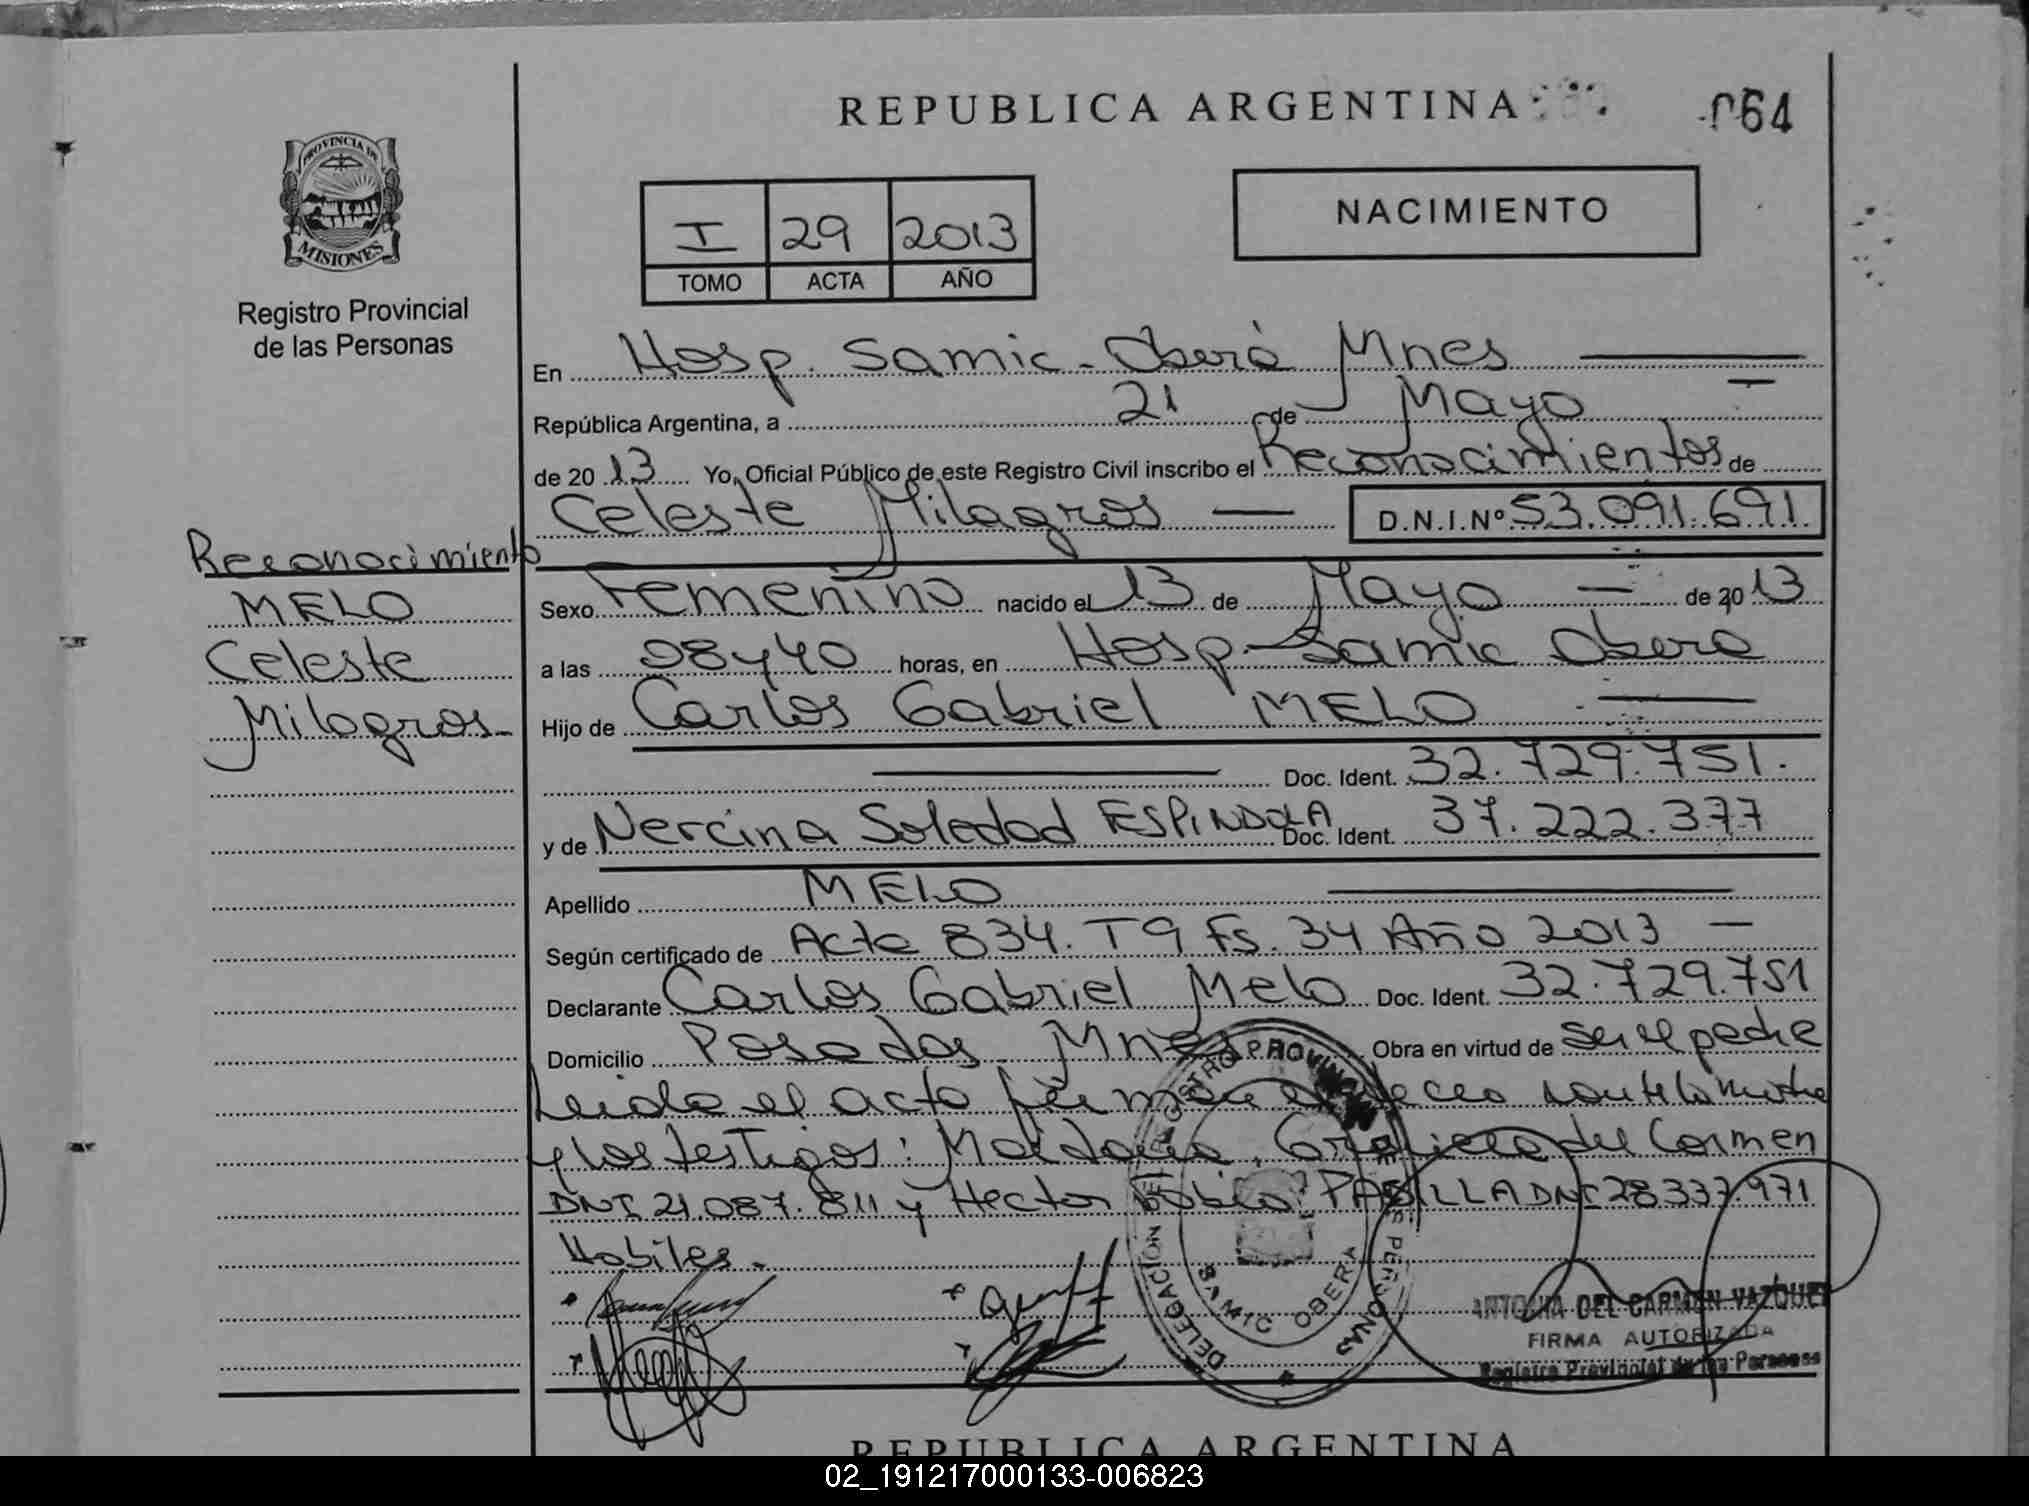 REPUBLICA ARGENTINA
064
PROVINCIA DE
MISIONES
Registro Provincial
de las Personas
I 29 2013
TOMO ACTA AÑO
NACIMIENTO
En Hosp. Samic - Oberá Mnes
República Argentina, a 21 de Mayo
de 2013 Yo, Oficial Público de este Registro Civil inscribo el Reconocimientos de
Celeste Milagros — D.N.I.Nº 53.091.691
Reconocimiento
MELO
Celeste
Milagros
Sexo Femenino nacido el 13 de Mayo — de 2013
a las 08y40 horas, en Hosp Samic Obera
Hijo de Carlos Gabriel MELO
Doc. Ident. 32.729.751.
y de Nercina Soledad ESPINDOLA Doc. Ident. 37.222.377
Apellido MELO
Según certificado de Acta 834. T9 Fs. 34 Año 2013 —
Declarante Carlos Gabriel Melo Doc. Ident. 32.729.751
Domicilio Posadas Mnes Obra en virtud de ser el padre
Leida el acta
y los testigos: Graciela del Carmen
DNI 21.087.811 y Hector Fabio PADILLA DNI 28.337.971
Habiles.
DELEGACIÓN DEL REGISTRO PROVINCIAL DE LAS PERSONAS
SAMIC OBERA
ANTONIA DEL CARMEN VAZQUEZ
FIRMA AUTORIZADA
Registro Provincial de las Personas
REPUBLICA ARGENTINA
02_191217000133-006823